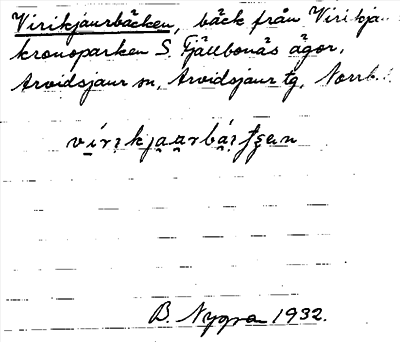 Virikjaurbäcken, bäck från Virikja..
kronoparken S. Fjällbonäs ägor,
Arvidsjaur sn, Arvidsjaur tg, Norrb.
B. Nygren 1932.